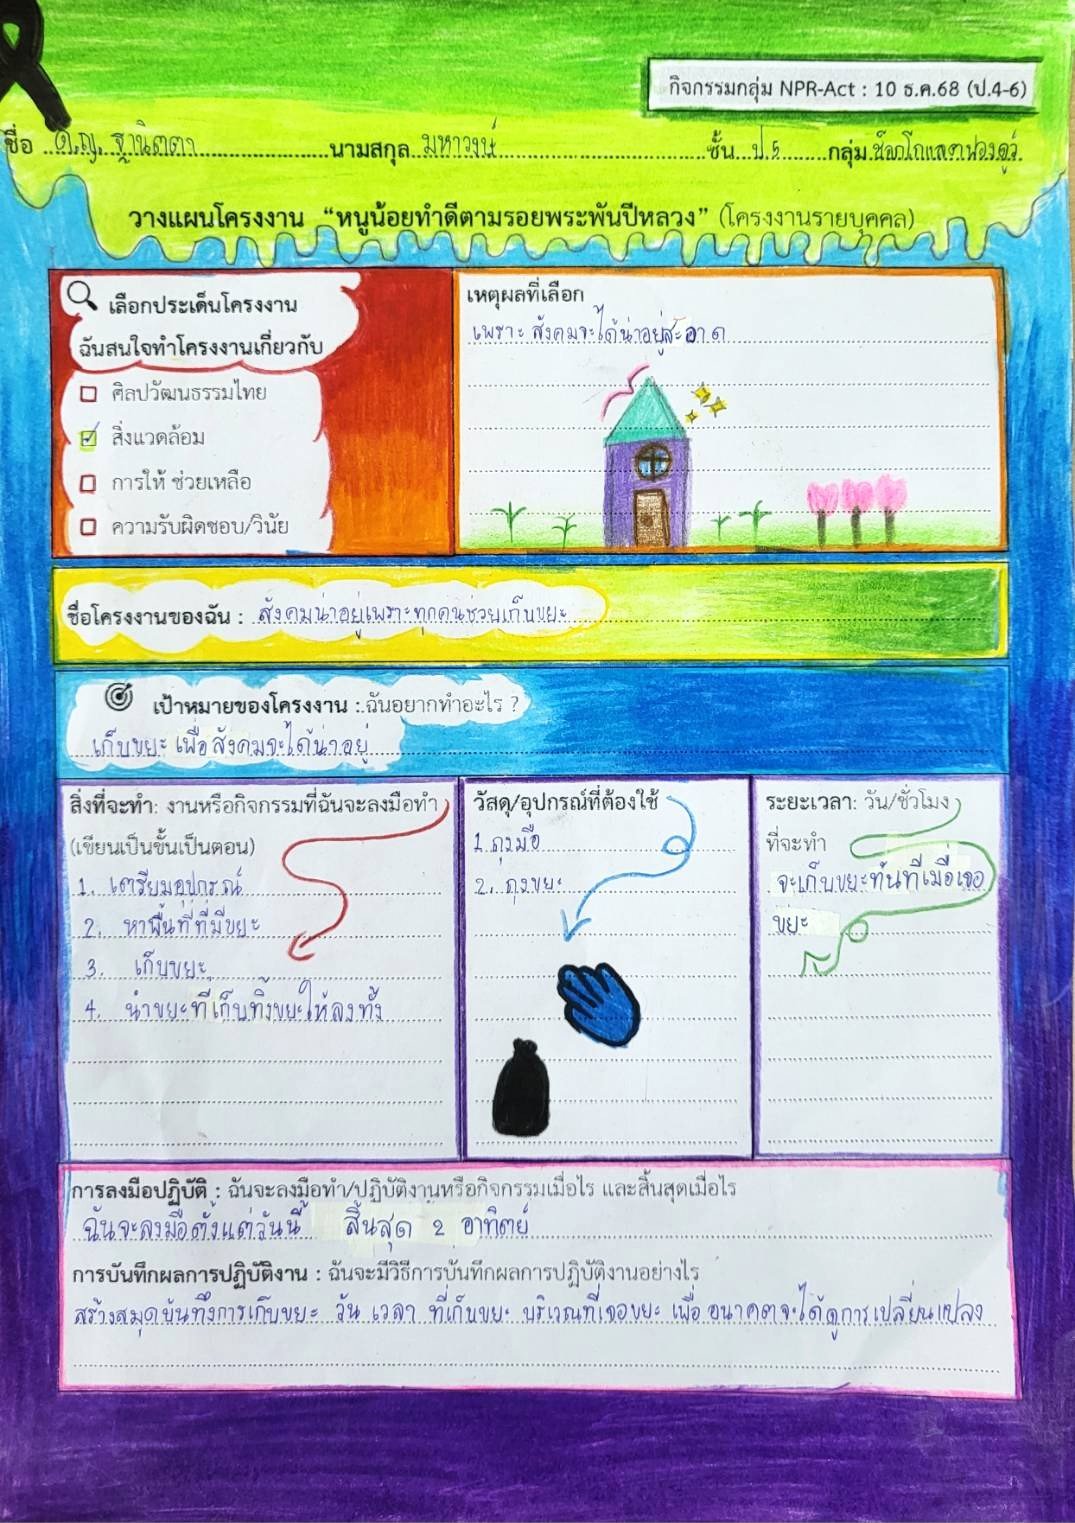 กิจกรรมกลุ่ม NPR-Act : 10 ธ.ค.68 (ป.4-6)
ชื่อ ด.ญ. ฐานิตตา นามสกุล มหาวงษ์ ชั้น ป.5 กลุ่ม ช็อกโกแลต
วางแผนโครงงาน “หนูน้อยทำดีตามรอยพระพันปีหลวง” (โครงงานรายบุคคล)
เลือกประเด็นโครงงาน
ฉันสนใจทำโครงงานเกี่ยวกับ
ศิลปวัฒนธรรมไทย
สิ่งแวดล้อม
การให้ ช่วยเหลือ
ความรับผิดชอบ/วินัย
เหตุผลที่เลือก
เพราะ สังคมจะได้น่าอยู่สะอาด
ชื่อโครงงานของฉัน : สังคมน่าอยู่เพราะทุกคนช่วยเก็บขยะ
เป้าหมายของโครงงาน : ฉันอยากทำอะไร ?
เก็บขยะ เพื่อสังคมจะได้น่าอยู่
สิ่งที่จะทำ: งานหรือกิจกรรมที่ฉันจะลงมือทำ
(เขียนเป็นขั้นเป็นตอน)
1. เตรียมอุปกรณ์
2. หาพื้นที่ที่มีขยะ
3. เก็บขยะ
4. นำขยะที่เก็บทิ้งขยะให้ลงทั้ง
วัสดุ/อุปกรณ์ที่ต้องใช้
1. ถุงมือ
2. ถุงขยะ
ระยะเวลา: วัน/ชั่วโมง
ที่จะทำ
จะเก็บขยะทันทีเมื่อเจอ
ขยะ
การลงมือปฏิบัติ : ฉันจะลงมือทำ/ปฏิบัติงานหรือกิจกรรมเมื่อไร และสิ้นสุดเมื่อไร
ฉันจะลงมือตั้งแต่วันนี้ สิ้นสุด 2 อาทิตย์
การบันทึกผลการปฏิบัติงาน : ฉันจะมีวิธีการบันทึกผลการปฏิบัติงานอย่างไร
สร้างสมุดบันทึกการเก็บขยะ วัน เวลา ที่เก็บขยะ บริเวณที่เจอขยะ เพื่อ อนาคตจะได้ดูการเปลี่ยนแปลง